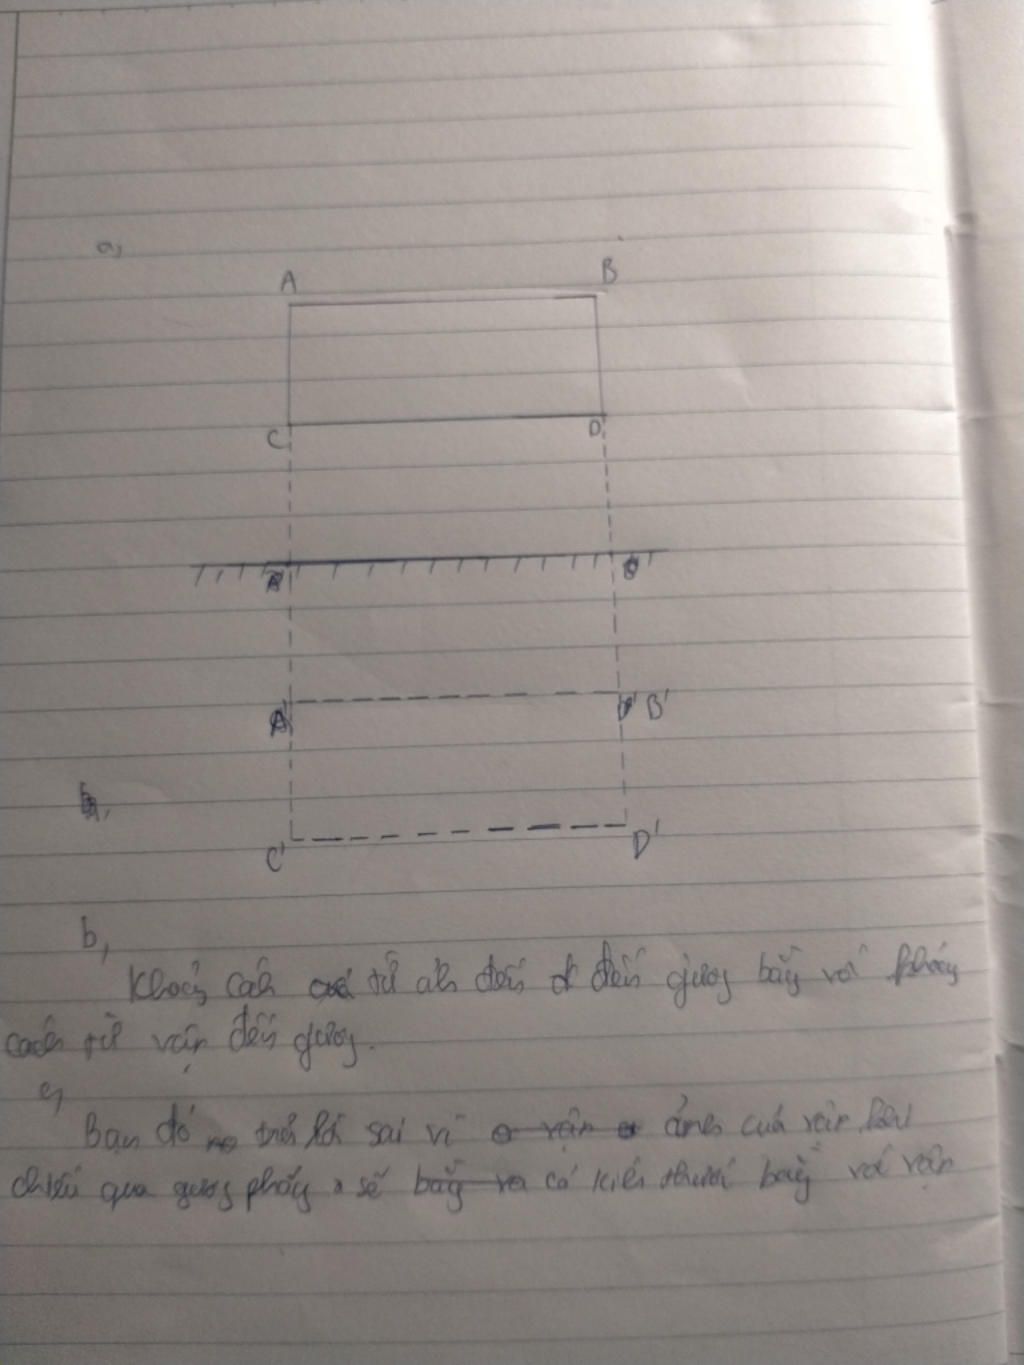 a,
A B
C D
A' B'
C' D'
b,
Khoảng cách từ ảnh đến gương bằng với khoảng
cách từ vật đến gương.
c,
Bạn đó trả lời sai vì ảnh của vật khi
chiếu qua gương phẳng sẽ có kích thước bằng với vật